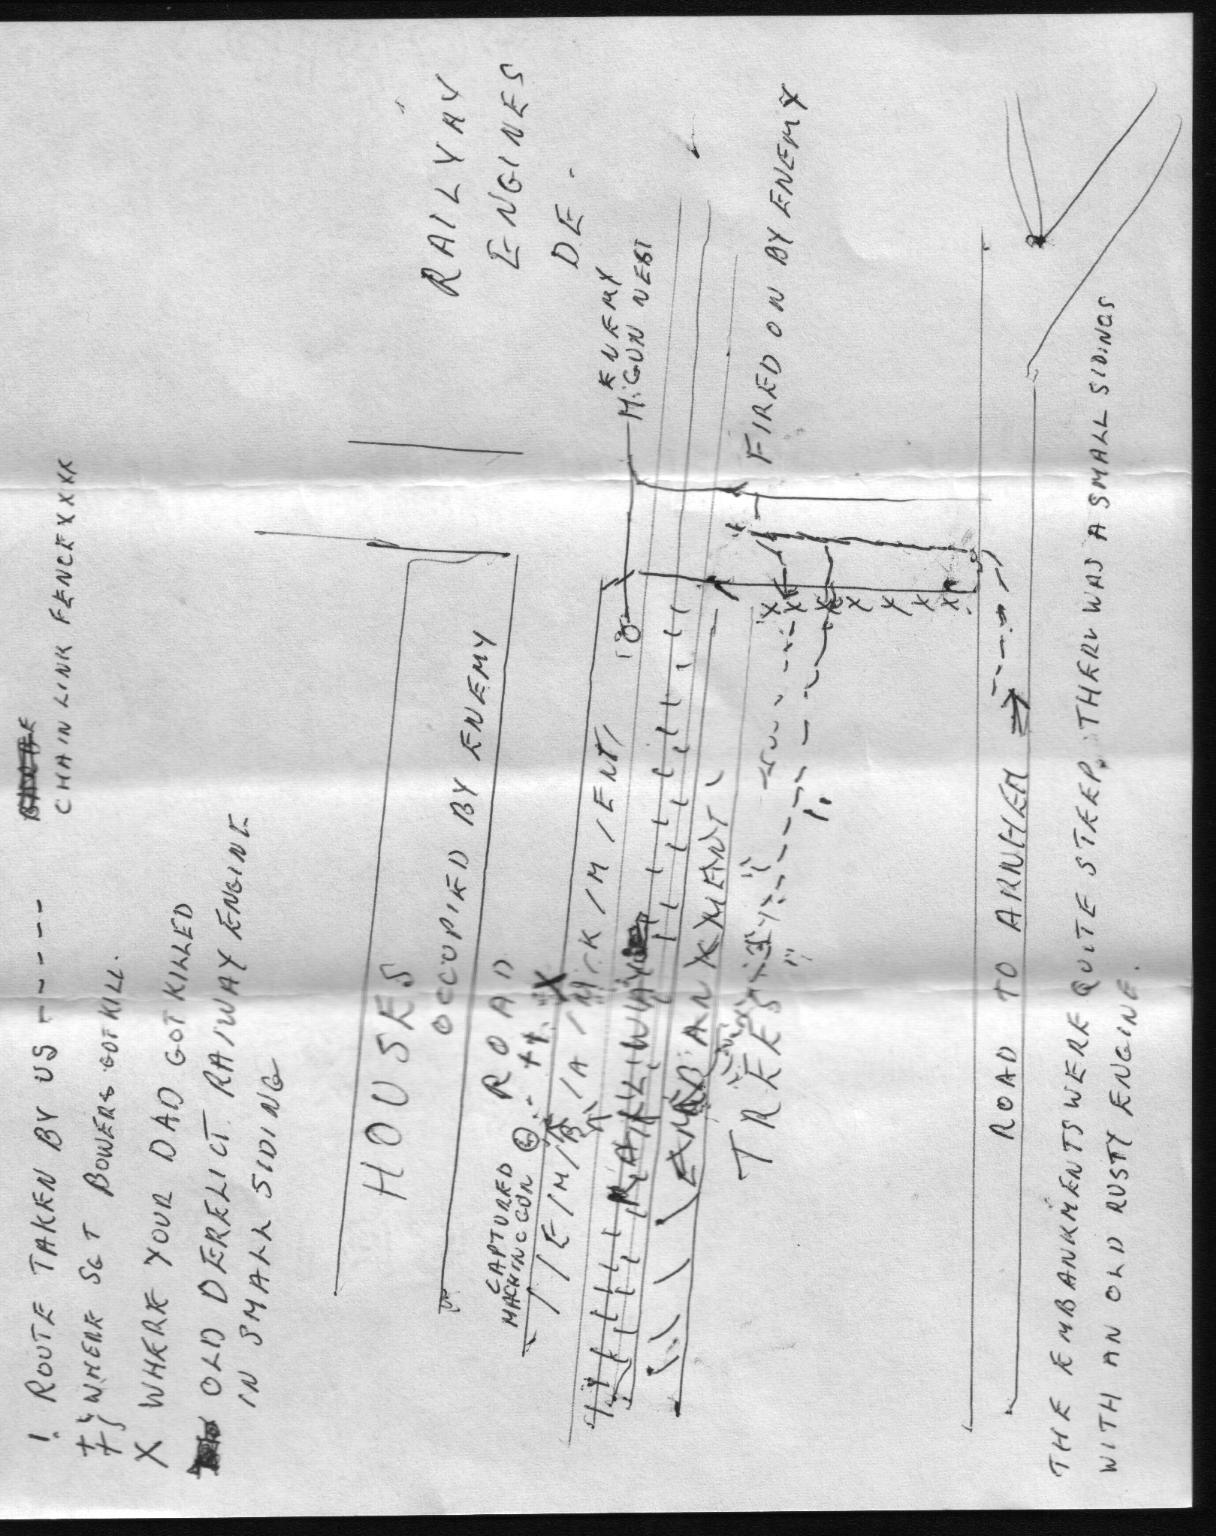 ! ROUTE TAKEN BY US -----
++ WHERE SGT BOWERS GOT KILL.
X WHERE YOUR DAD GOT KILLED
OLD DERELICT. RAIWAY ENGINE
IN SMALL SIDING
CHAIN LINK FENCE XXXX
RAILWAY
ENGINES
DE.
HOUSES
OCCUPIED BY ENEMY
ROAD
CAPTURED
MACHINGGUN
ENEMY
M.GUN NEST
RAILWAY
EMBANKMENT
FIRED ON BY ENEMY
TREES
ROAD TO ARNHEM
THE EMBANKMENTS WERE QUITE STEEP, THERE WAS A SMALL SIDINGS
WITH AN OLD RUSTY ENGINE.